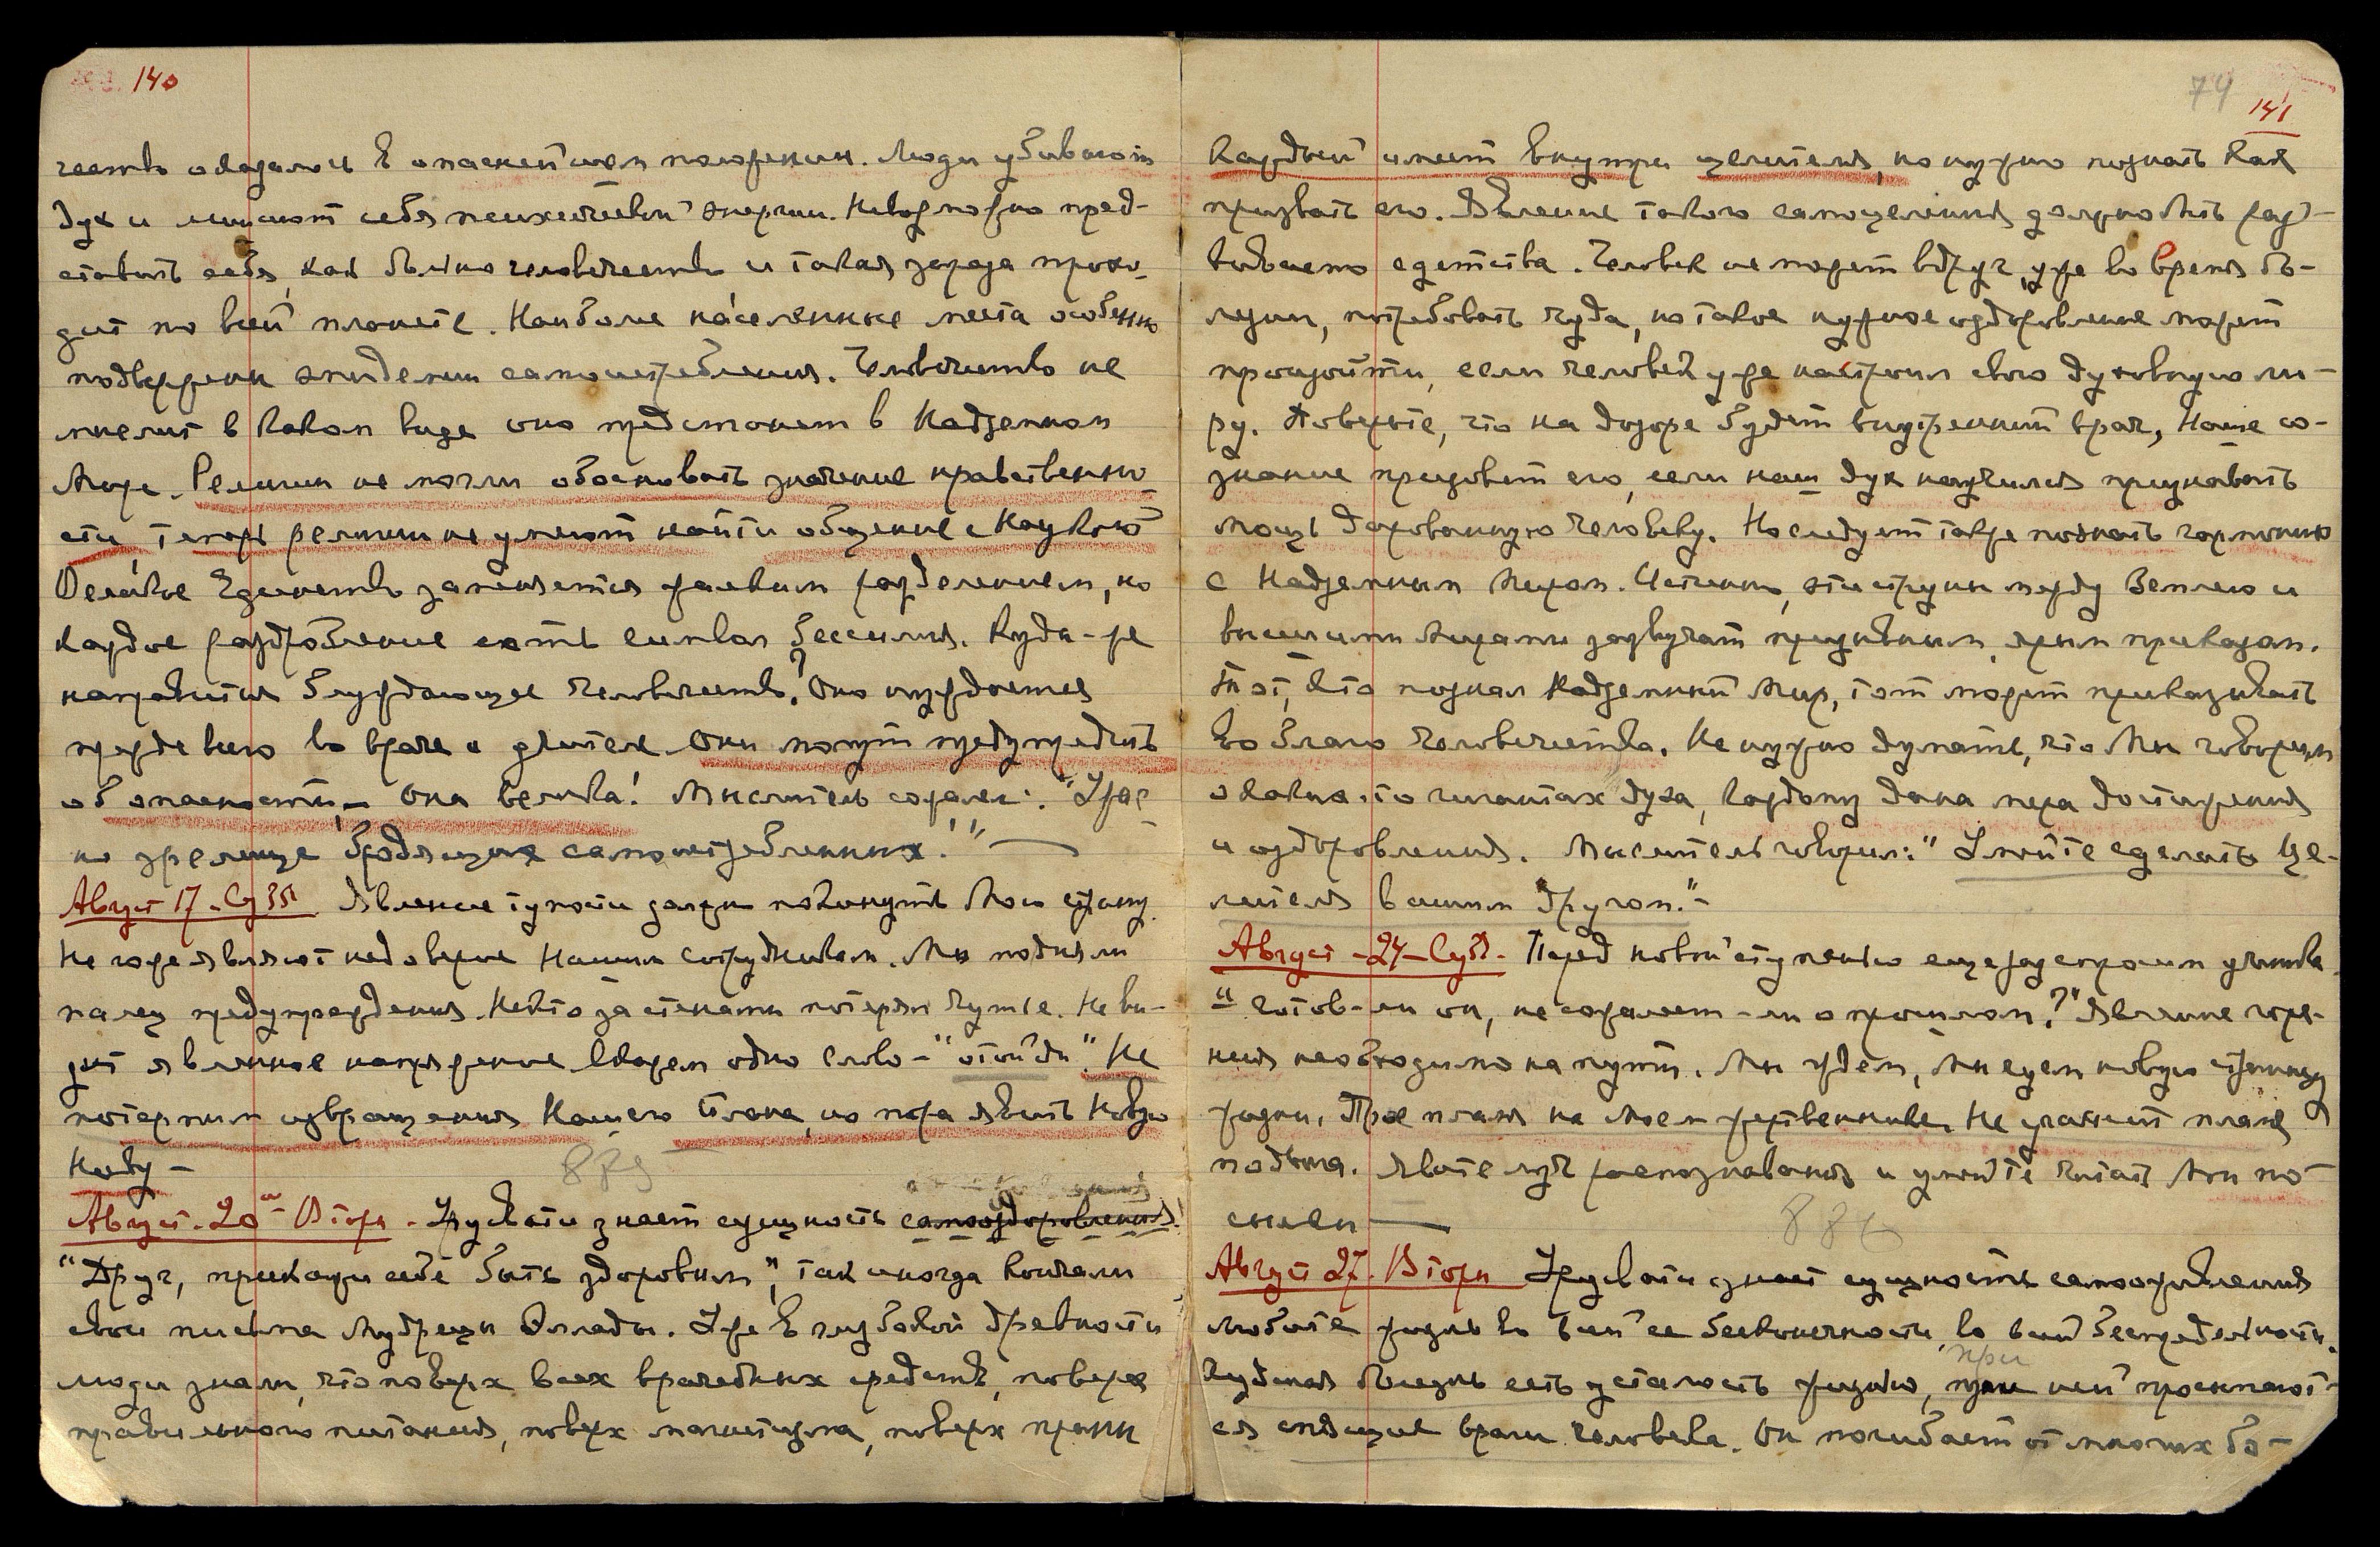 140
чество оказалось в опаснейшем положении. Люди убивают
дух и лишают себя психической энергии. Невозможно пред-
ставить себе, как больно человечество и такая зараза прохо-
дит по всей планете. Наиболее населенные места особенно
подвержены эпидемии самоистребления. Человечество не
мыслит в каком виде оно предстанет в Надземном
Мире. Религии не могли обосновать значение нравственно-
сти, теперь религии не умеют найти общение с Наукою
Великое Единение заменяется ржавым разделением, но
каждое раздробление есть символ бессилия. Куда-же
направится блуждающее человечество? Оно нуждается
прежде всего во враче и учителе Они могут предупредить
об опасности – Она велика! Мыслитель сожалел: "Ужас-
но зрелище бродящих самоистребленных!" —
Август 17 – Суб. Явление тупости должны покинуть Мою страну.
Не гоже являют недоверие Нашим сотрудникам. Мы подняли
палец предупреждения. Некто за стенами потерял чутье. Не ви-
дит явленное напряжение Скажем одно слово – "отойди". Не
потерпим извращения Нашего Плана, но пора явить Новую
Ноту –
885
Август. 20 – Вторн. – Урусвати знает сущность самооздоровления.
"Друг, прикажи себе быть здоровым", так иногда кончали
свои письма Мудрецы Эллады. Уже в глубокой древности
люди знали, что поверх всех врачебных средств, поверх
правильного питания, поверх магнетизма, поверх праны
74
141
Каждый имеет внутри целителя, но нужно познать как
призвать его. Явление такого самоцеления должно быть раз-
виваемо с детства. Человек не может вдруг, уже во время бо-
лезни, потребовать чуда, но такое нужное оздоровление может
произойти, если человек уже настроил свою духовную ли-
ру. Поверьте, что на дозоре будет внутренний врач, Наше со-
знание призовет его, если наш дух научился признавать
мощь дарованную человеку. Но следует также познать гармонию
с Надземным Миром. Истинно, эти струны между Землею и
высшими Мирами зазвучат призывным, ярым приказом.
Тот, кто познал Надземный Мир, тот может приказывать
во благо человечества. Не нужно думать, что Мы говорим
о каких-то гигантах духа, каждому дана мера достижения
и оздоровления. Мыслитель говорил: "Умейте сделать Це-
лителя вашим другом." –
Август – 24 – Суб. – Перед новой ступенью еще раз спросим ученика
– "готов-ли он, не сожалеет-ли о прошлом?" Явление горе-
ния необходимо на пути. Мы ждем, Мы ищем новую страницу
жизни. Твое пламя на Моем жертвеннике. Не угаснет пламя
подвига. Явите луч распознавания и умейте читать Мои по-
сылки —
886
Август 27. Вторн Урусвати знает сущность самооживления
Любите жизнь во всей ее бесконечности, во всей беспредельности.
при
Худшая болезнь есть усталость жизнью, при ней просыпают-
ся спящие враги человека. Он погибает от многих бо-